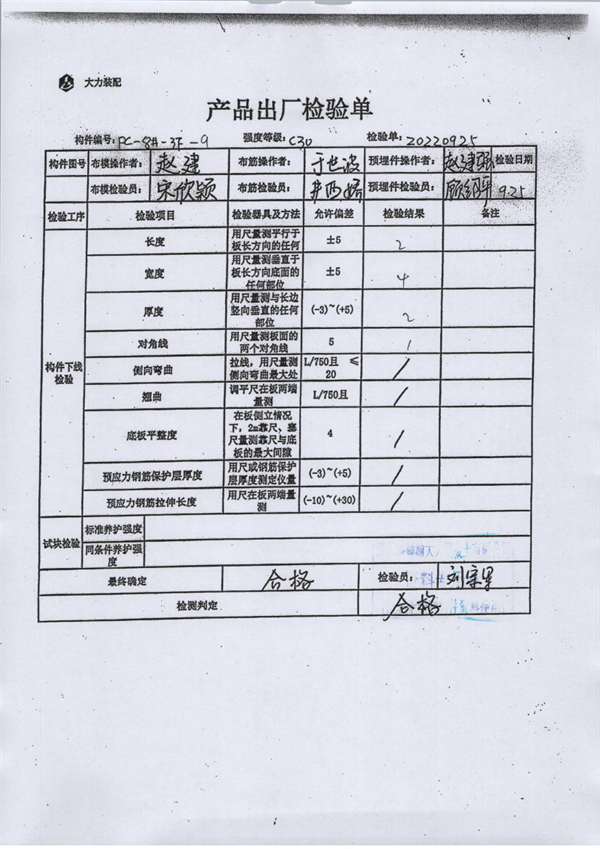 大力装配
产品出厂检验单
构件编号: PC-8#-3F-9 强度等级: C30 检验单: 20220925
构件图号 布模操作者: 赵建 布筋操作者: 预埋件操作者: 检验日期
布模检验员: 宋欣颖 布筋检验员: 预埋件检验员: 9.25
检验工序 检验项目 检验器具及方法 允许偏差 检验结果 备注
构件下线检验
长度 用尺量测平行于板长方向的任何 ±5 2
宽度 用尺量测垂直于板长方向底面的任何部位 ±5 4
厚度 用尺量测与长边竖向垂直的任何部位 (-3)~(+5) 2
对角线 用尺量测板面的两个对角线 5 1
侧向弯曲 拉线，用尺量测侧向弯曲最大处 L/750且 ≤20 /
翘曲 调平尺在板两端量测 L/750且 /
底板平整度 在板侧立情况下，2m靠尺、塞尺量测靠尺与底板的最大间隙 4 /
预应力钢筋保护层厚度 用尺或钢筋保护层厚度测定仪量 (-3)~(+5) /
预应力钢筋拉伸长度 用尺在板两端量测 (-10)~(+30) /
试块检验 标准养护强度
同条件养护强度
最终确定 合格 检验员:
检测判定 合格